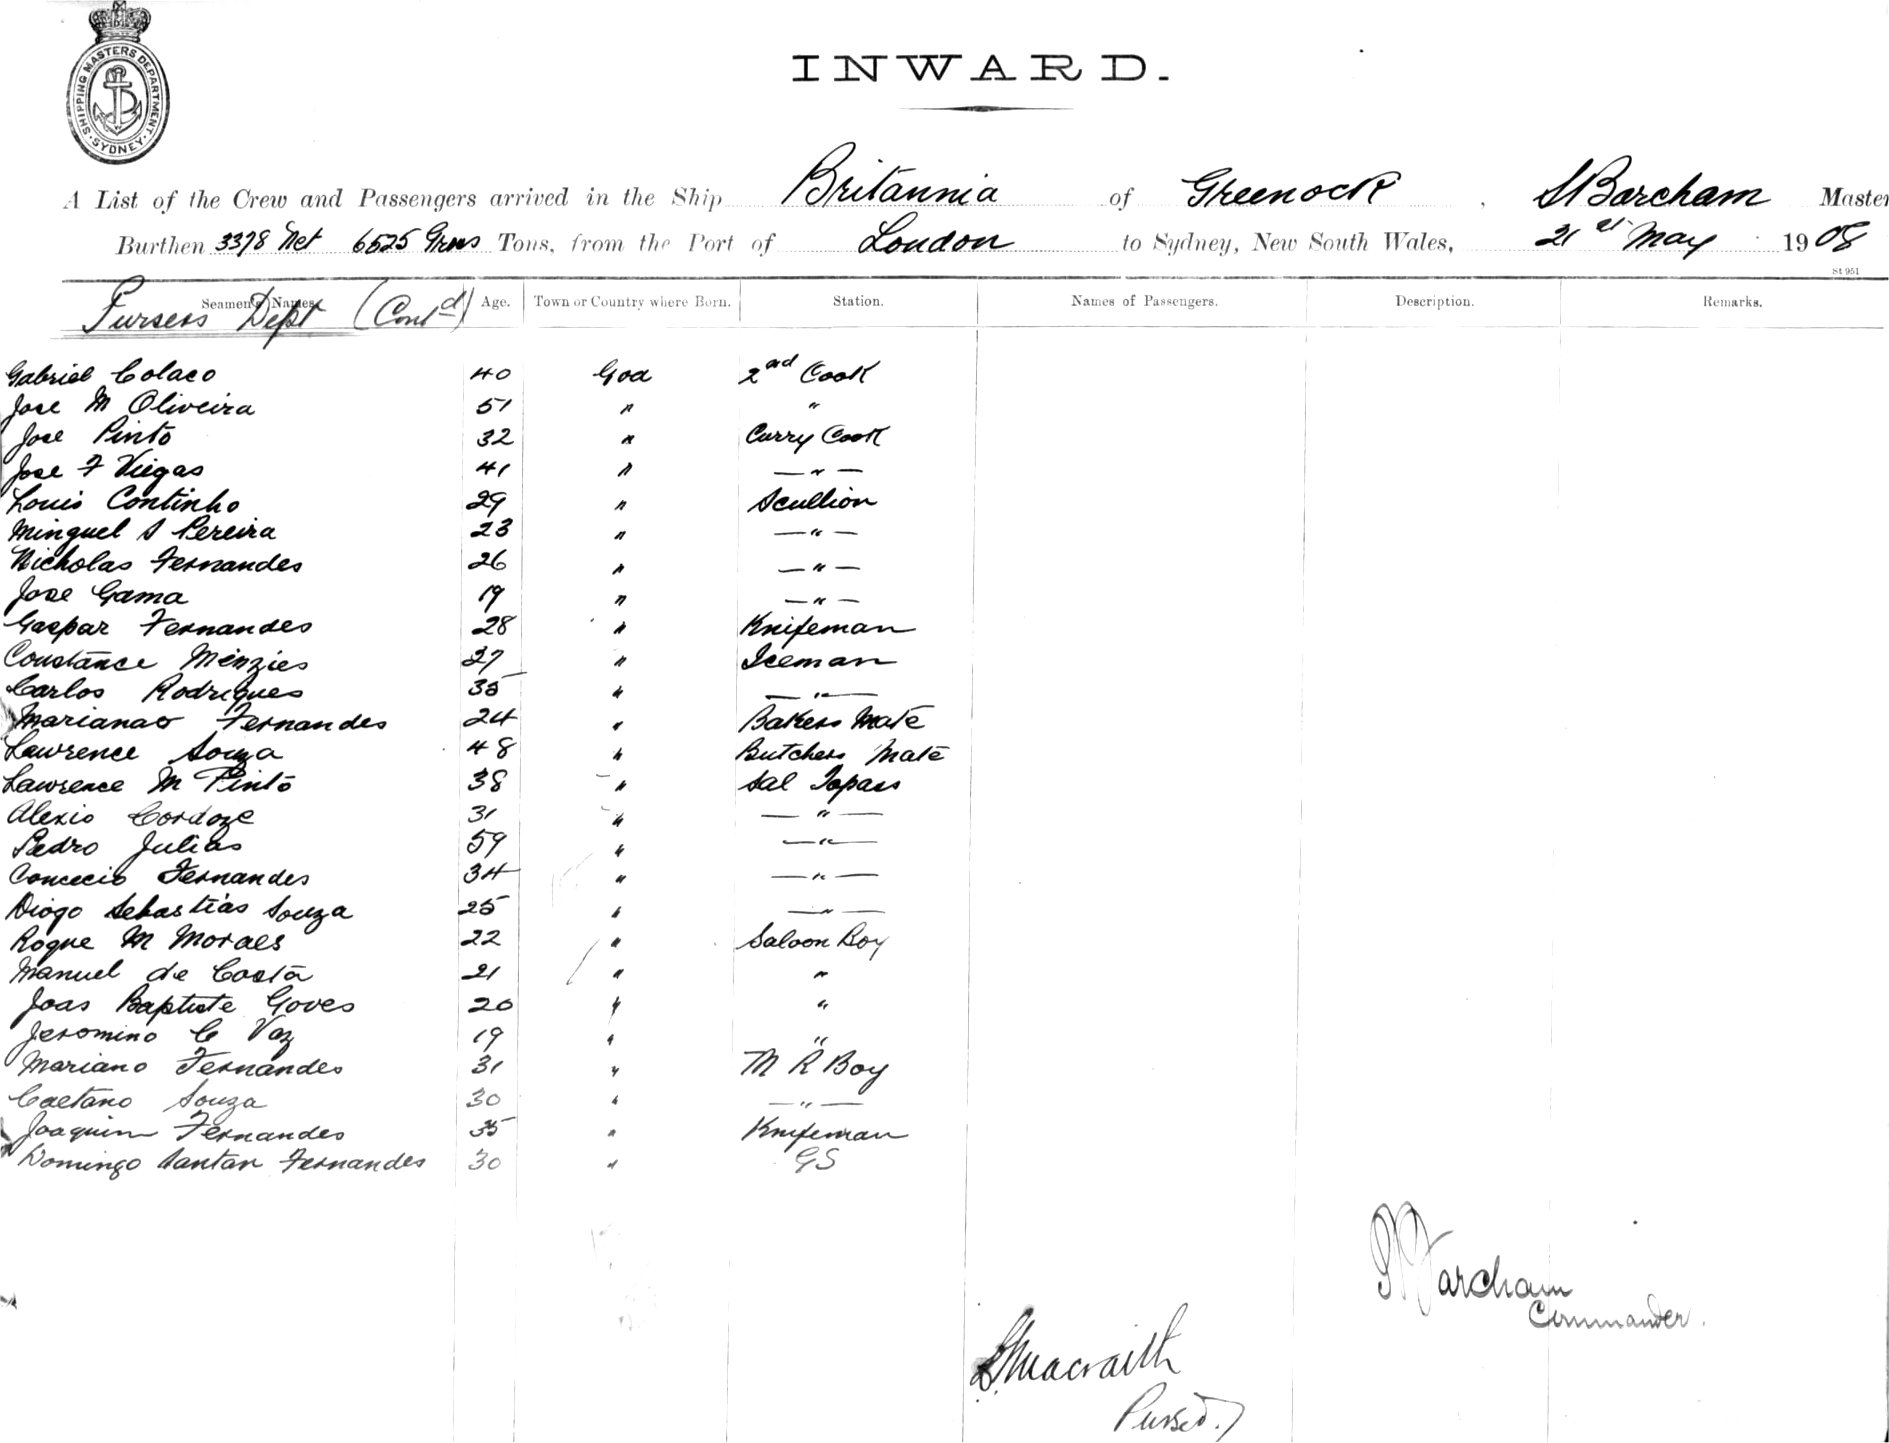 SHIPPING MASTERS DEPARTMENT
SYDNEY
INWARD.
A List of the Crew and Passengers arrived in the Ship Britannia of Greenock, S Barcham Master
Burthen 3378 Net 6525 Gross Tons, from the Port of London to Sydney, New South Wales, 21st May 1908
St 951
Seamen's Names. Age. Town or Country where Born. Station. Names of Passengers. Description. Remarks.
Pursers Dept (Contd)
Gabriel Colaco 40 Goa 2nd Cook
Jose M Oliveira 51 " "
Jose Pinto 32 " Curry Cook
Jose F Viegas 41 " — " —
Louis Continho 29 " Scullion
Minguel S Pereira 23 " — " —
Nicholas Fernandes 26 " — " —
Jose Gama 19 " — " —
Gaspar Fernandes 28 " Knifeman
Constance Menzies 27 " Iceman
Carlos Rodrigues 35 " — " —
Marianao Fernandes 24 " Bakers Mate
Lawrence Souza 48 " Butchers Mate
Lawrence M Pinto 38 " Sal Topass
Alexio Cordoze 31 " — " —
Pedro Julias 59 " — " —
Concecio Fernandes 34 " — " —
Diogo Sebastias Souza 25 " — " —
Roque M Moraes 22 " Saloon Boy
Manuel de Costa 21 " "
Joas Baptiste Goves 20 " "
Jeromino C Vaz 19 " "
Mariano Fernandes 31 " M R Boy
Caetano Souza 30 " — " —
Joaquim Fernandes 35 " Knifeman
Domingo Santan Fernandes 30 " GS
Barcham
Commander.
Macraith
Purser.